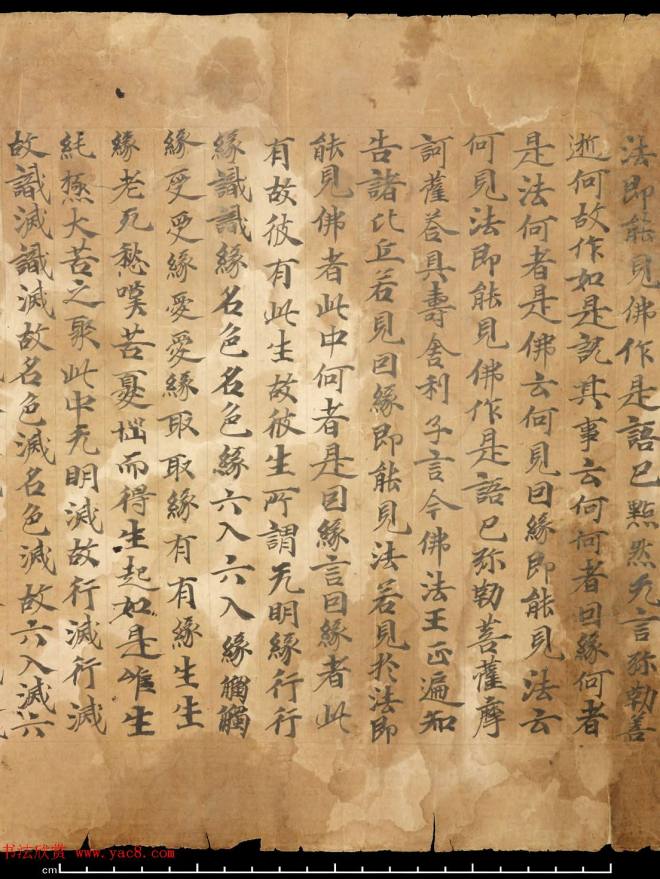 法即能見佛作是語已默然无言弥勒善
逝何故作如是說其事云何何者因緣何者
是法何者是佛云何見因緣即能見法云
何見法即能見佛作是語已弥勒菩薩摩
訶薩荅具壽舍利子言今佛法王正遍知
告諸比丘若見因緣即能見法若見於法即
能見佛者此中何者是因緣言因緣者此
有故彼有此生故彼生所謂无明緣行行
緣識識緣名色名色緣六入六入緣觸觸
緣受受緣愛愛緣取取緣有有緣生生
緣老死愁嘆苦憂惱而得生起如是唯生
純極大苦之聚此中无明滅故行滅行滅
故識滅識滅故名色滅名色滅故六入滅六
书法欣赏 www.yac8.com
cm